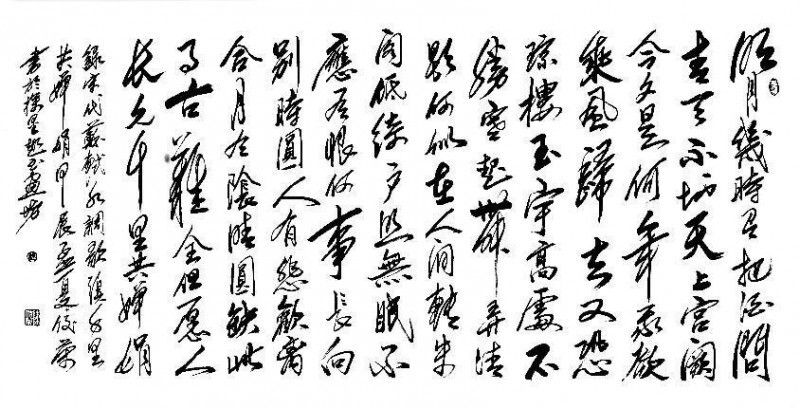 明月幾時有把酒問
青天不知天上宮闕
今夕是何年我欲
乘風歸去又恐
瓊樓玉宇高處不
勝寒起舞弄清
影何似在人間轉朱
閣低綺戶照無眠不
應有恨何事長向
別時圓人有悲歡離
合月有陰晴圓缺此
事古難全但願人
長久千里共嬋娟
錄宋代蘇軾水調歌頭千里
共嬋娟甲辰孟夏
書於